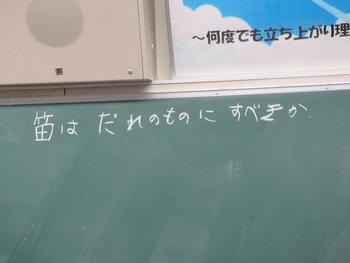 ～何度でも立ち上がり理
笛は だれのものに すべきか.